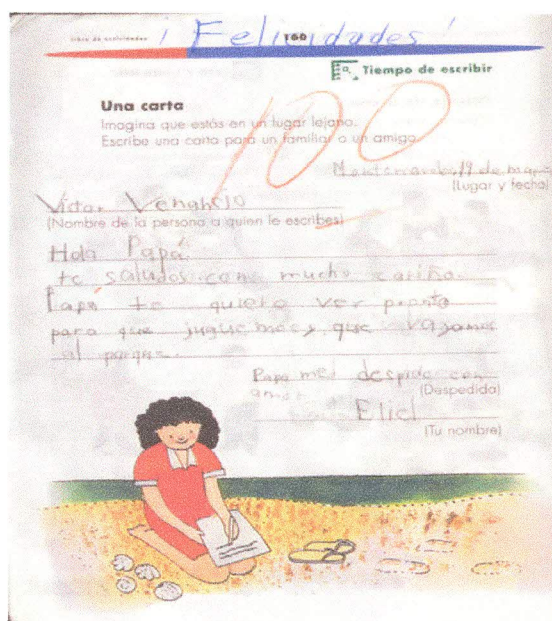 ¡Felicidades!
libro de actividades 160
Tiempo de escribir
100
Una carta
Imagina que estás en un lugar lejano.
Escribe una carta para un familiar o un amigo.
19 de
(Lugar y fecha)
Victor Venancio
(Nombre de la persona a quien le escribes)
Hola Papá
te saludos con mucho cariño.
Papá te quiero ver pronto
para que juguemos y que vayamos
al parque.
Papa me despido con
amor
(Despedida)
Eliel
(Tu nombre)